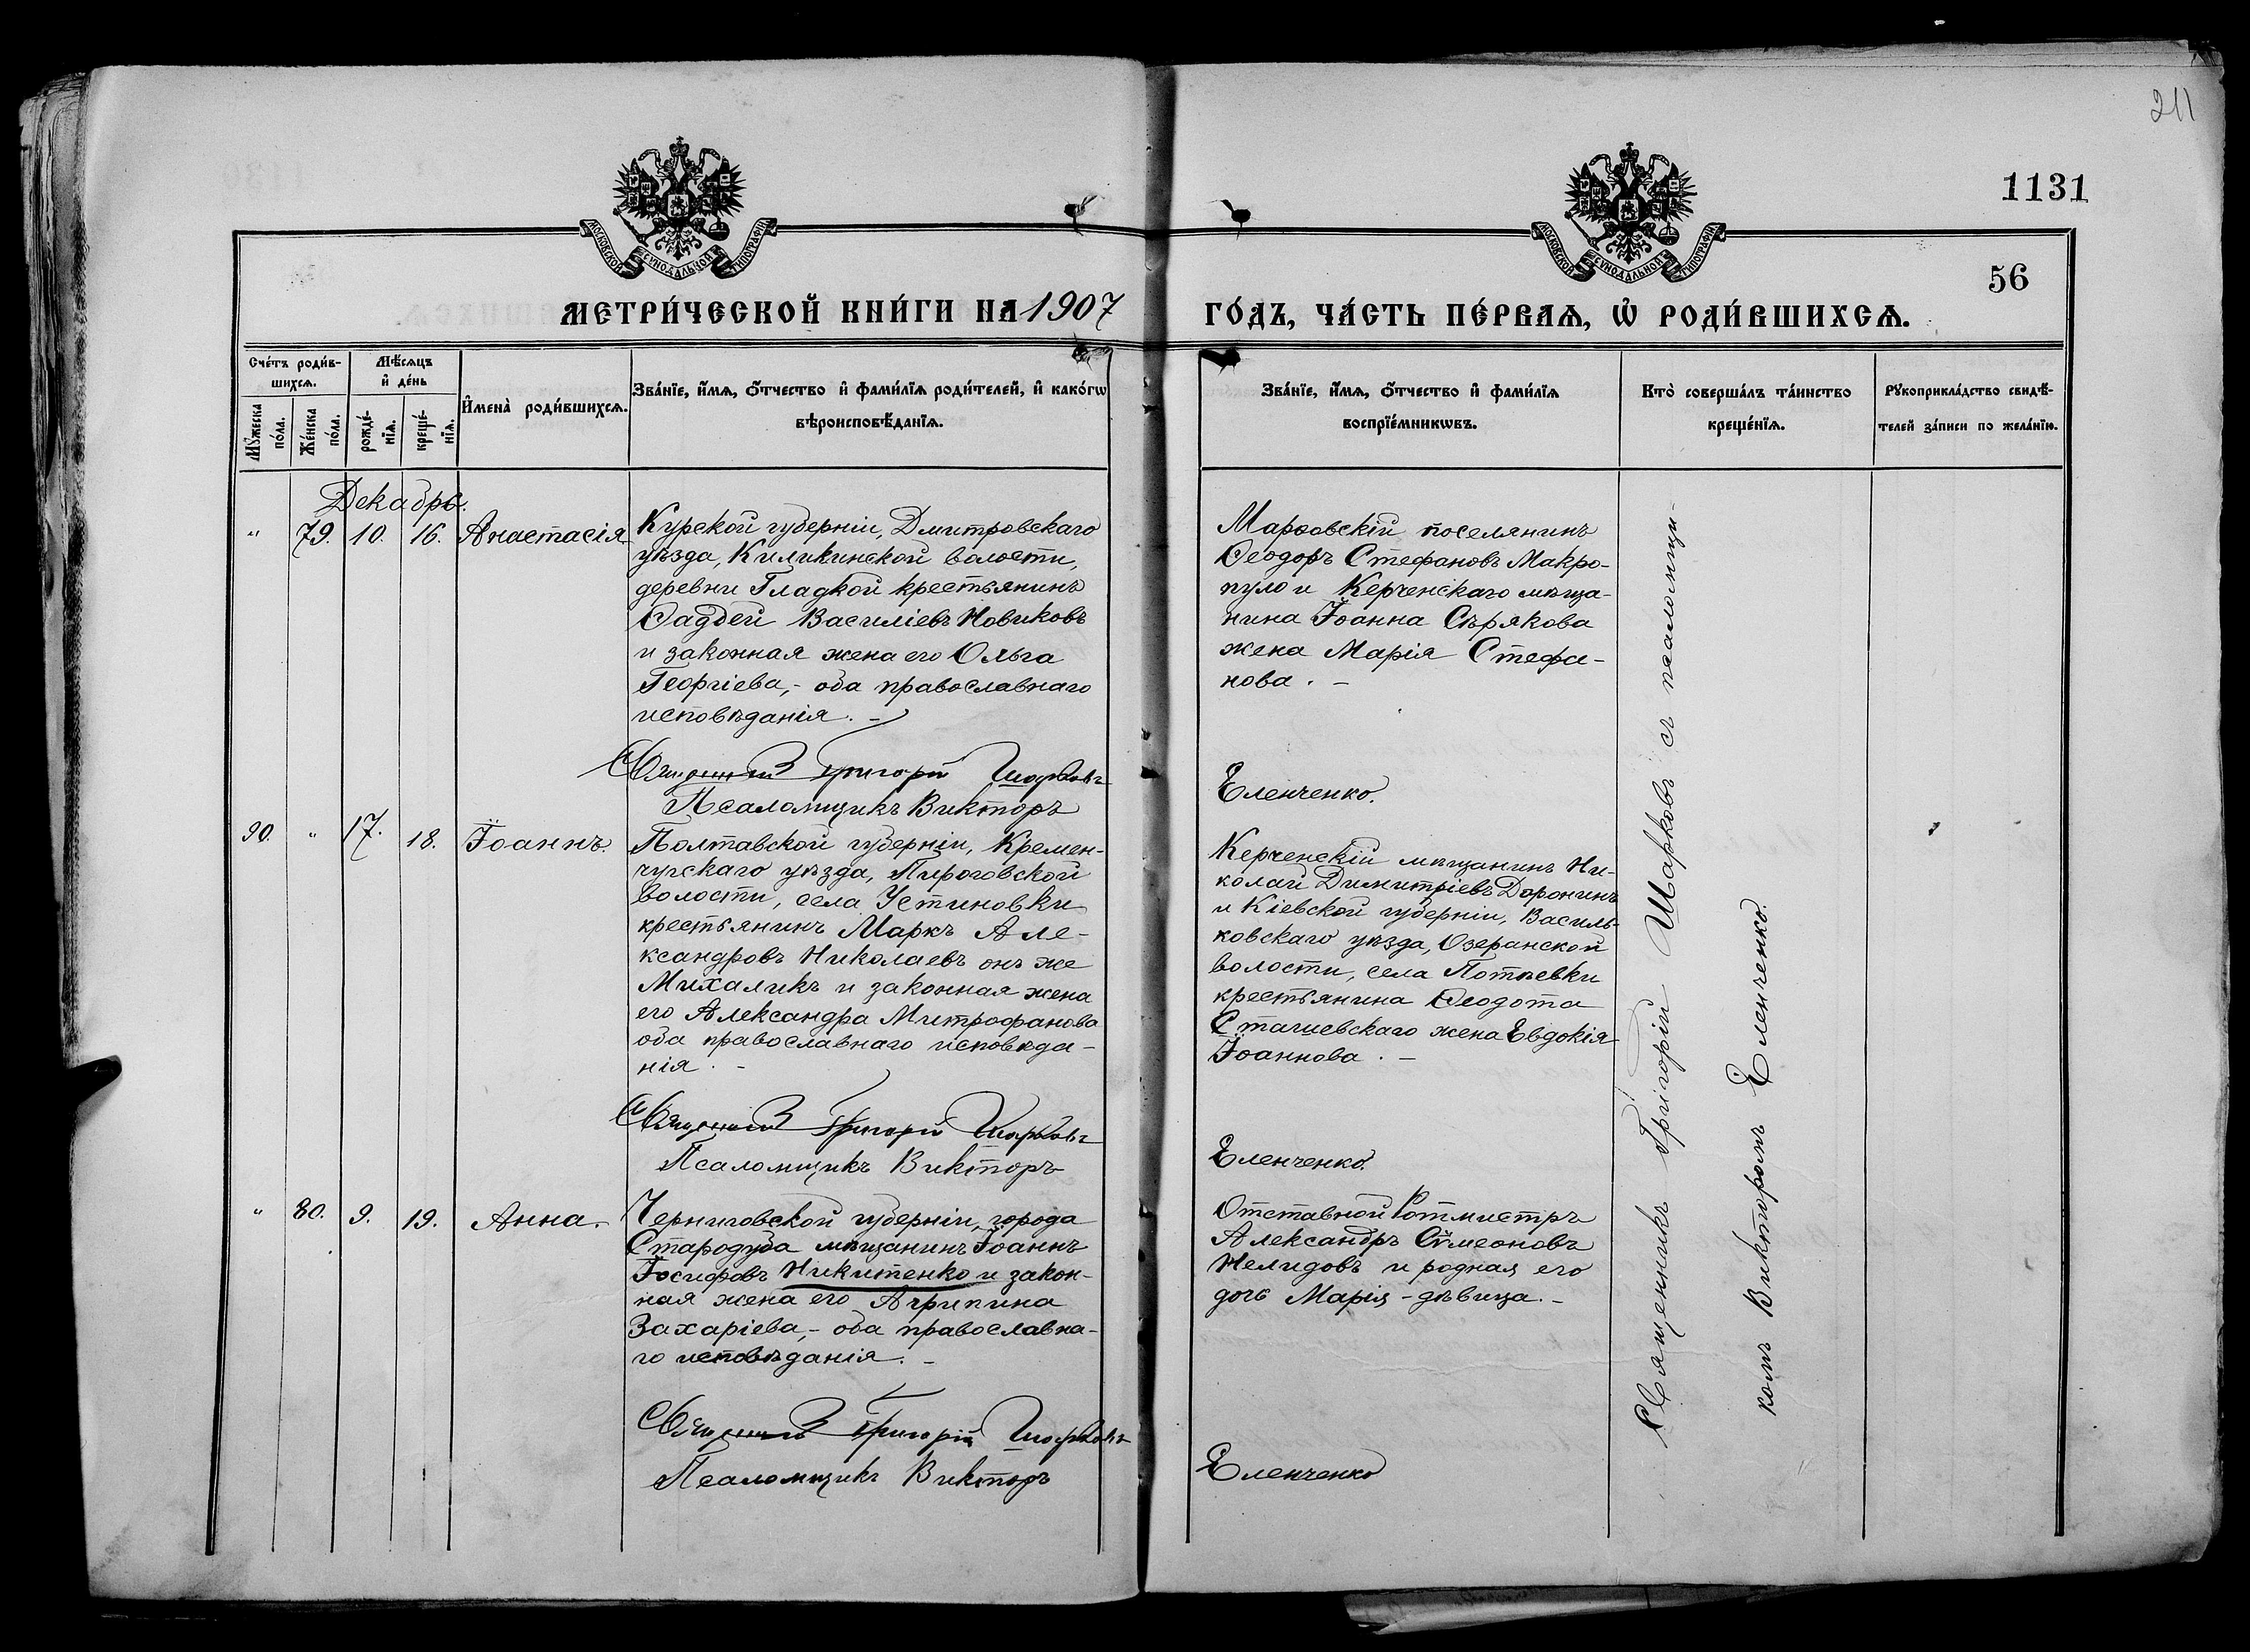 211
1131
МОСКОВСКОЙ СѴНОДАЛЬНОЙ ТИПОГРАФІИ
МОСКОВСКОЙ СѴНОДАЛЬНОЙ ТИПОГРАФІИ
56
МЕТРИ́ЧЕСКОЙ КНИ́ГИ НА 1907
ГО́ДЪ, ЧА́СТЬ ПЕ́РВАѦ, Ѡ҆ РОДИ́ВШИХСѦ.
Сче́тъ роди́в-
шихсѧ.
Мѣ́сѧцъ
и҆ де́нь
Мꙋ́жеска
по́ла.
Же́нска
по́ла.
рожде́-
нїѧ.
креще́-
нїѧ.
И҆мена̀ роди́вшихсѧ.
Зва́нїе, и҆́мѧ, о҆́тчество и҆ фами́лїѧ роди́телей, и҆ како́гѡ
вѣроисповѣ́данїѧ.
Зва́нїе, и҆́мѧ, о҆́тчество и҆ фами́лїѧ
воспрїе́мникѡвъ.
Кто̀ соверша́лъ та́инство
креще́нїѧ.
Рꙋкоприкла́дство свидѣ́-
телей за́писи по жела́нїю.
Декабрь.
" 79. 10. 16. Анастасія
Курской губерніи, Дмитровскаго
уѣзда, Киликинской волости,
деревни Гладкой крестьянинъ
Ѳаддей Василіевъ Новиковъ
и законная жена его Ольга
Георгіева,- оба православнаго
исповѣданія. -
Священникъ Григорій Шарковъ
Псаломщикъ Викторъ
Марѳовскій поселянинъ
Ѳеодоръ Стефановъ Макро-
пуло и Керченскаго мѣща-
нина Іоанна Сѣрякова
жена Марія Стефа-
нова. -
Еленченко.
90. " 17. 18. Іоаннъ.
Полтавской губерніи, Кремен-
чугскаго уѣзда, Пироговской
волости, села Устиновки
крестьянинъ Маркъ Але-
ксандровъ Николаевъ онъ же
Михаликъ и законная жена
его Александра Митрофанова
оба православнаго исповѣда-
нія. -
Священникъ Григорій Шарковъ
Псаломщикъ Викторъ
Керченскій мѣщанинъ Ни-
колай Димитріевъ Доронинъ
и Кіевской губерніи, Василь-
ковскаго уѣзда, Озеранской
волости, села Потіевки
крестьянина Ѳеодота
жена Евдокія
Іоаннова. -
Еленченко.
" 80. 9. 19. Анна.
Черниговской губерніи, города
Стародуба мѣщанинъ Іоаннъ
Іосифовъ Никитенко и закон-
ная жена его Агрипина
Захаріева,- оба православна-
го исповѣданія. -
Священникъ Григорій Шарковъ
Псаломщикъ Викторъ
Отставной Ротмистръ
Александръ Сѵмеоновъ
Нелидовъ и родная его
дочь Марія - дѣвица. -
Еленченко
Священникъ Григорій Шарковъ съ псаломщи-
комъ Викторомъ Еленченко.